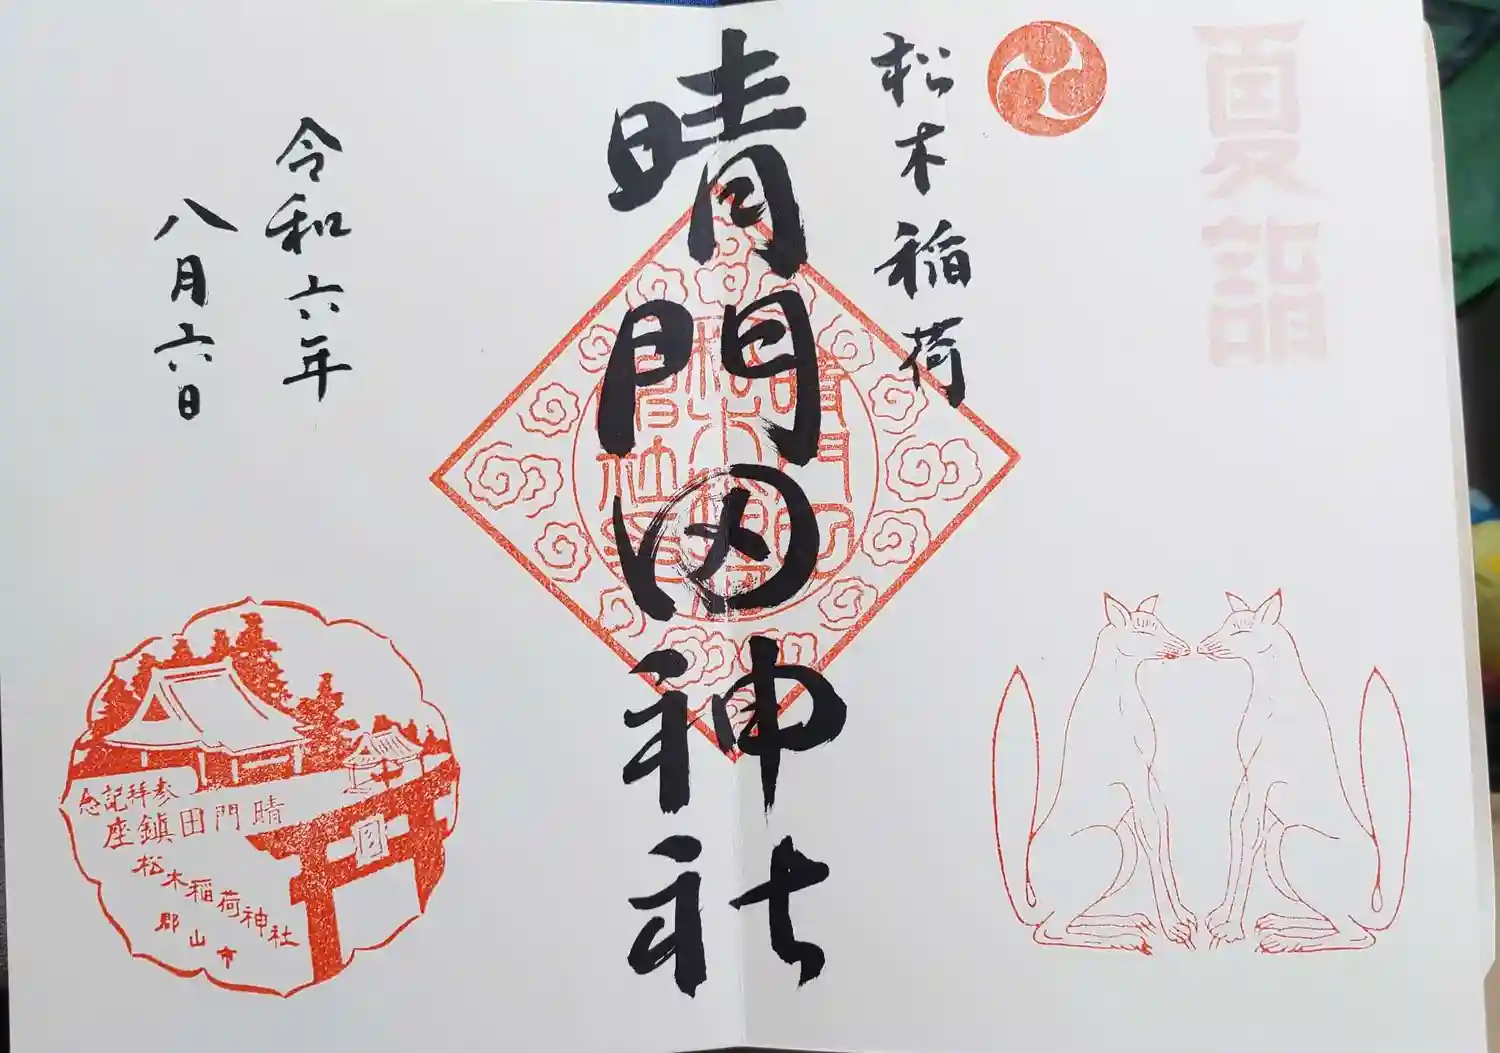 夏詣
松木稲荷
晴門田神社
令和六年
八月六日
参拝記念
晴門田鎮座
松木稲荷神社
郡山市